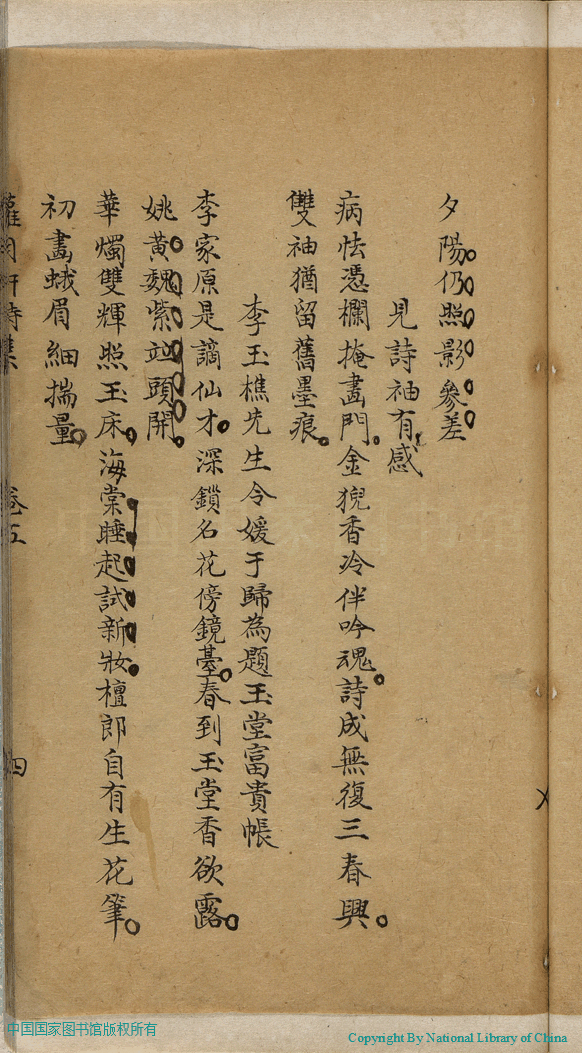 夕陽仍照影參差
見詩袖有感
病怯憑欄掩畫門金猊香冷伴吟魂詩成無復三春興
雙袖猶留舊墨痕
李玉樵先生令媛于歸為題玉堂富貴帳
李家原是謫仙才深鎖名花傍鏡臺春到玉堂香欲露
姚黃魏紫竝頭開
華燭雙輝照玉床海棠睡起試新妝檀郎自有生花筆
初畫蛾眉細揣量
卷五
四
中国国家图书馆版权所有
Copyright By National Library of China